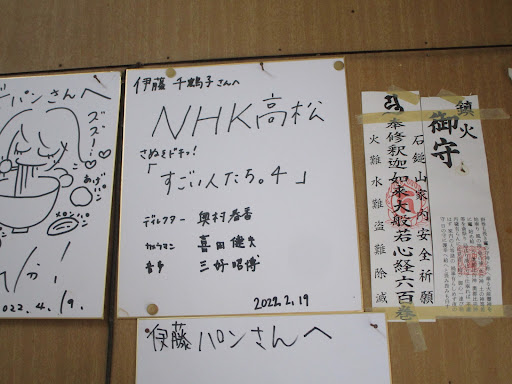 パンさんへ
ズズ!
あげパン
メロンパン
2022.4.19.
伊藤 千鶴子さんへ
NHK高松
さぬきドキッ!
「すごい人たち。4」
ディレクター 奥村春香
カメラマン 喜田健久
音声 三好昭博
2022.2.19
伊藤パンさんへ
奉修釈迦如来大般若心経六百巻
石鎚山家内安全祈願
火難水難盗難除滅
鎮火
御守